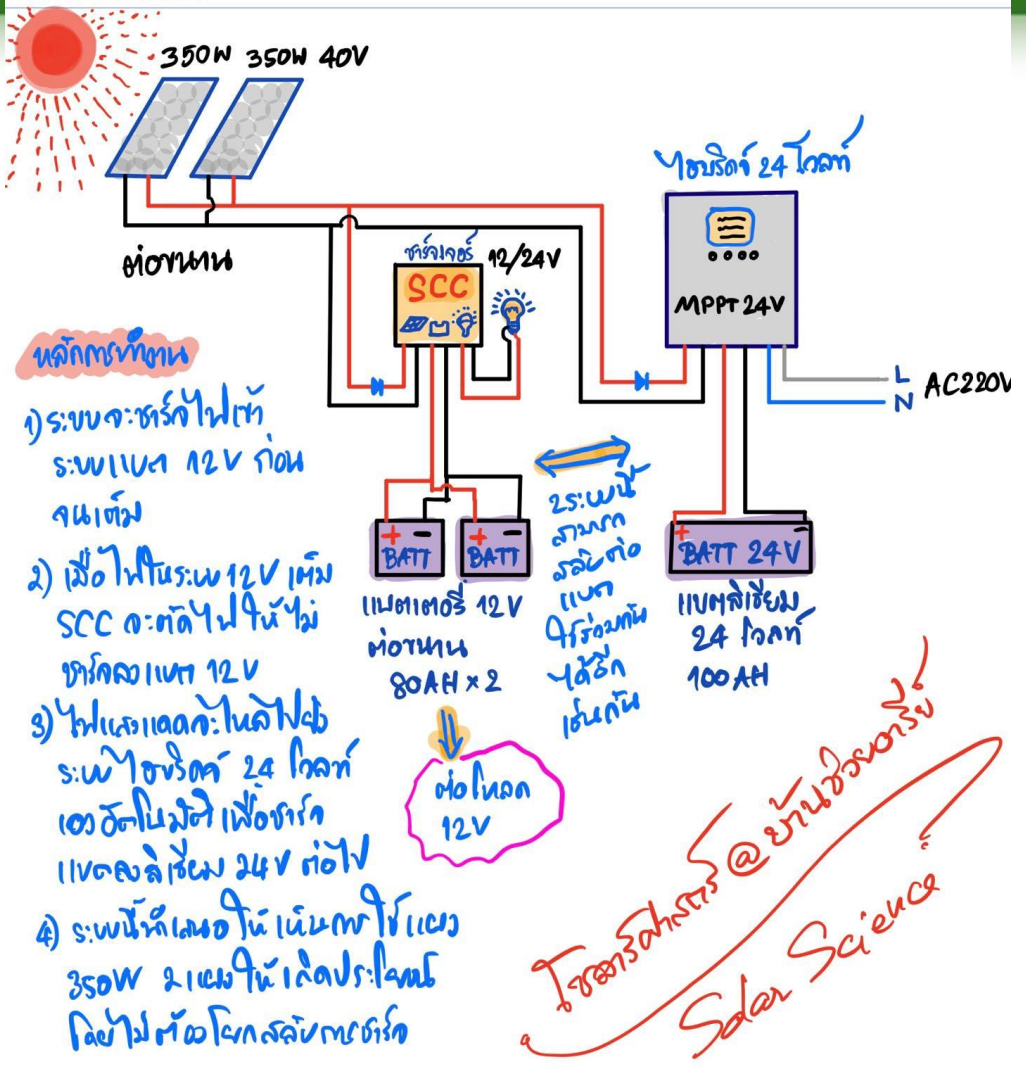 350W 350W 40V
ต่อขนาน
ไฮบริดจ์ 24 โวลท์
ชาร์จเจอร์ 12/24V
SCC
MPPT 24V
L
N
AC220V
หลักการทำงาน
1) ระบบจะชาร์จไฟเข้า
ระบบแบต 12V ก่อน
จนเต็ม
2) เมื่อไฟในระบบ 12V เต็ม
SCC จะตัดไฟให้ไม่
ชาร์จลงแบต 12V
3) ไฟแสงแดดจะไหลไปยัง
ระบบไฮบริดจ์ 24 โวลท์
เองอัตโนมัติเพื่อชาร์จ
แบตลงลิเธียม 24V ต่อไป
4) ระบบนี้นำเสนอให้เห็นการใช้แผง
350W 2 แผงให้เกิดประโยชน์
โดยไม่ต้องโยกสลับการชาร์จ
+ -
BATT
+ -
BATT
แบตเตอรี่ 12V
ต่อขนาน
80AH x 2
ต่อโหลด
12V
2ระบบนี้
สามารถ
สลับต่อ
แบต
ใช้ร่วมกัน
ได้อีก
เช่นกัน
+ -
BATT 24V
แบตลิเธียม
24 โวลท์
100AH
โซลาร์ศาสตร์@บ้านช่วยอารีย์
Solar Science